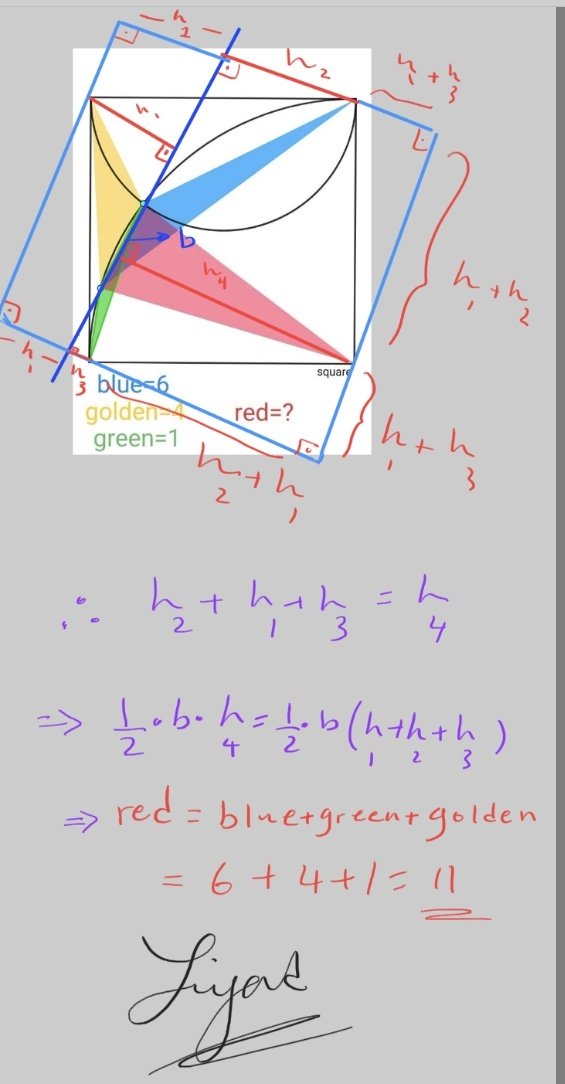 h₂
h₂
h₁ + h₃
h₁
b
h₄
h₁ + h₂
h₁
h₃
square
blue=6
golden=4
red=?
green=1
h₁ + h₃
h₂ + h₁
∴ h₂ + h₁ + h₃ = h₄
⇒ 1/2 · b · h₄ = 1/2 · b (h₁ + h₂ + h₃)
⇒ red = blue + green + golden
= 6 + 4 + 1 = 11